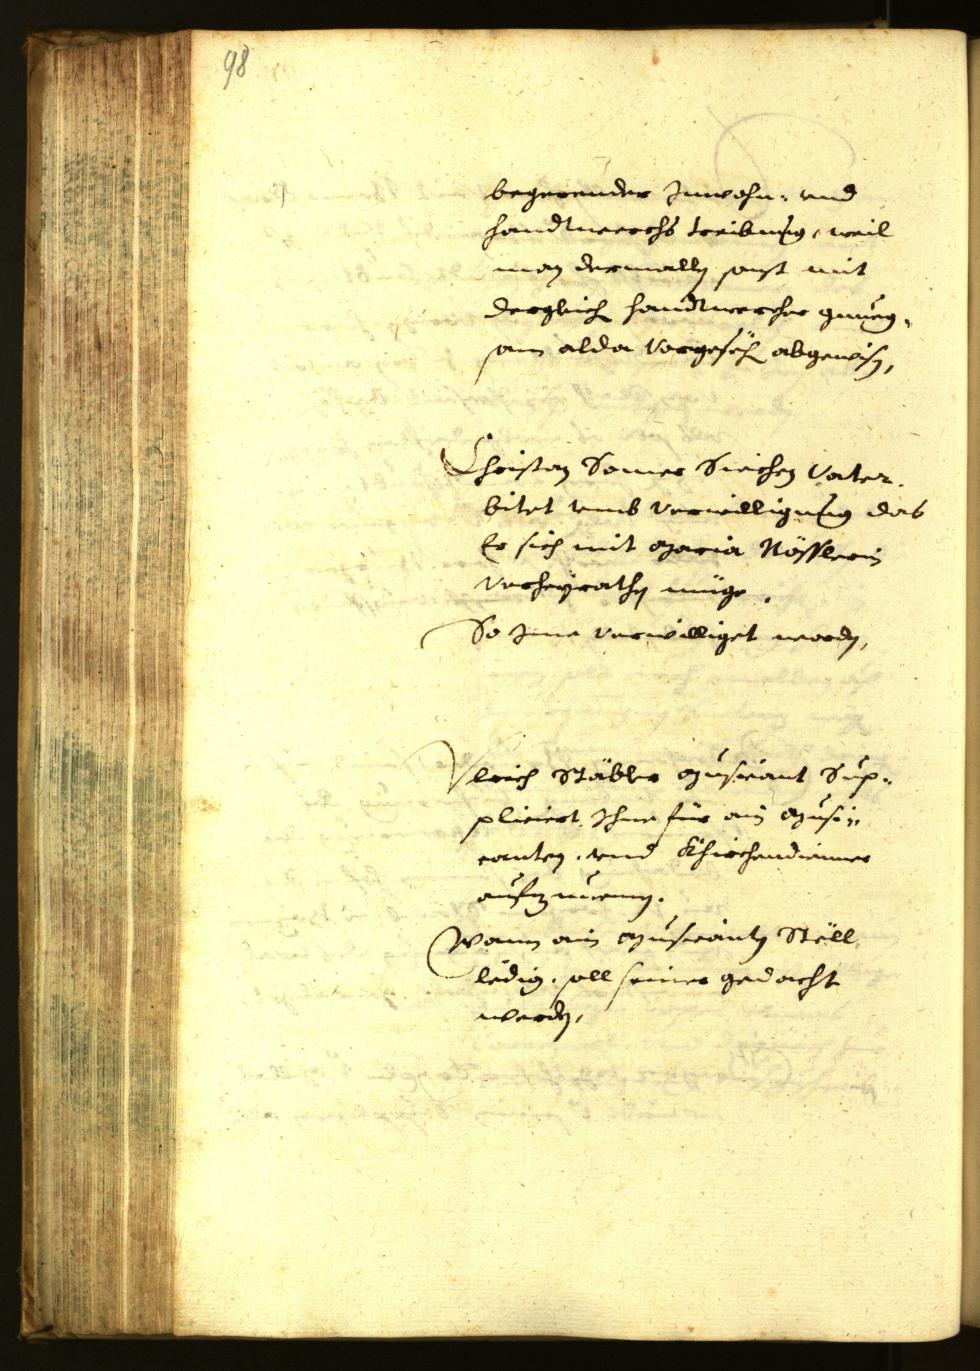 98
begerender Inwohn: und
handtwerchs treibung, weil
man dermalln sonst mit
dergleich handtwercher gnueg-
sam alda vorgesech abgewisn,
Christan Somer Siechen Vater.
bitet umb verwilligung das
Er sich mit Maria Nösslerin
verheyrathn müge.
So Ime verwilliget wordn,
Ulrich Stäbler Musicant Sup-
pliciert, Ihne für ain Musi-
canten, und Khirchendienner
aufzunemen.
Wann ain Musicantn Stell
ledig, soll seiner gedacht
werdn,